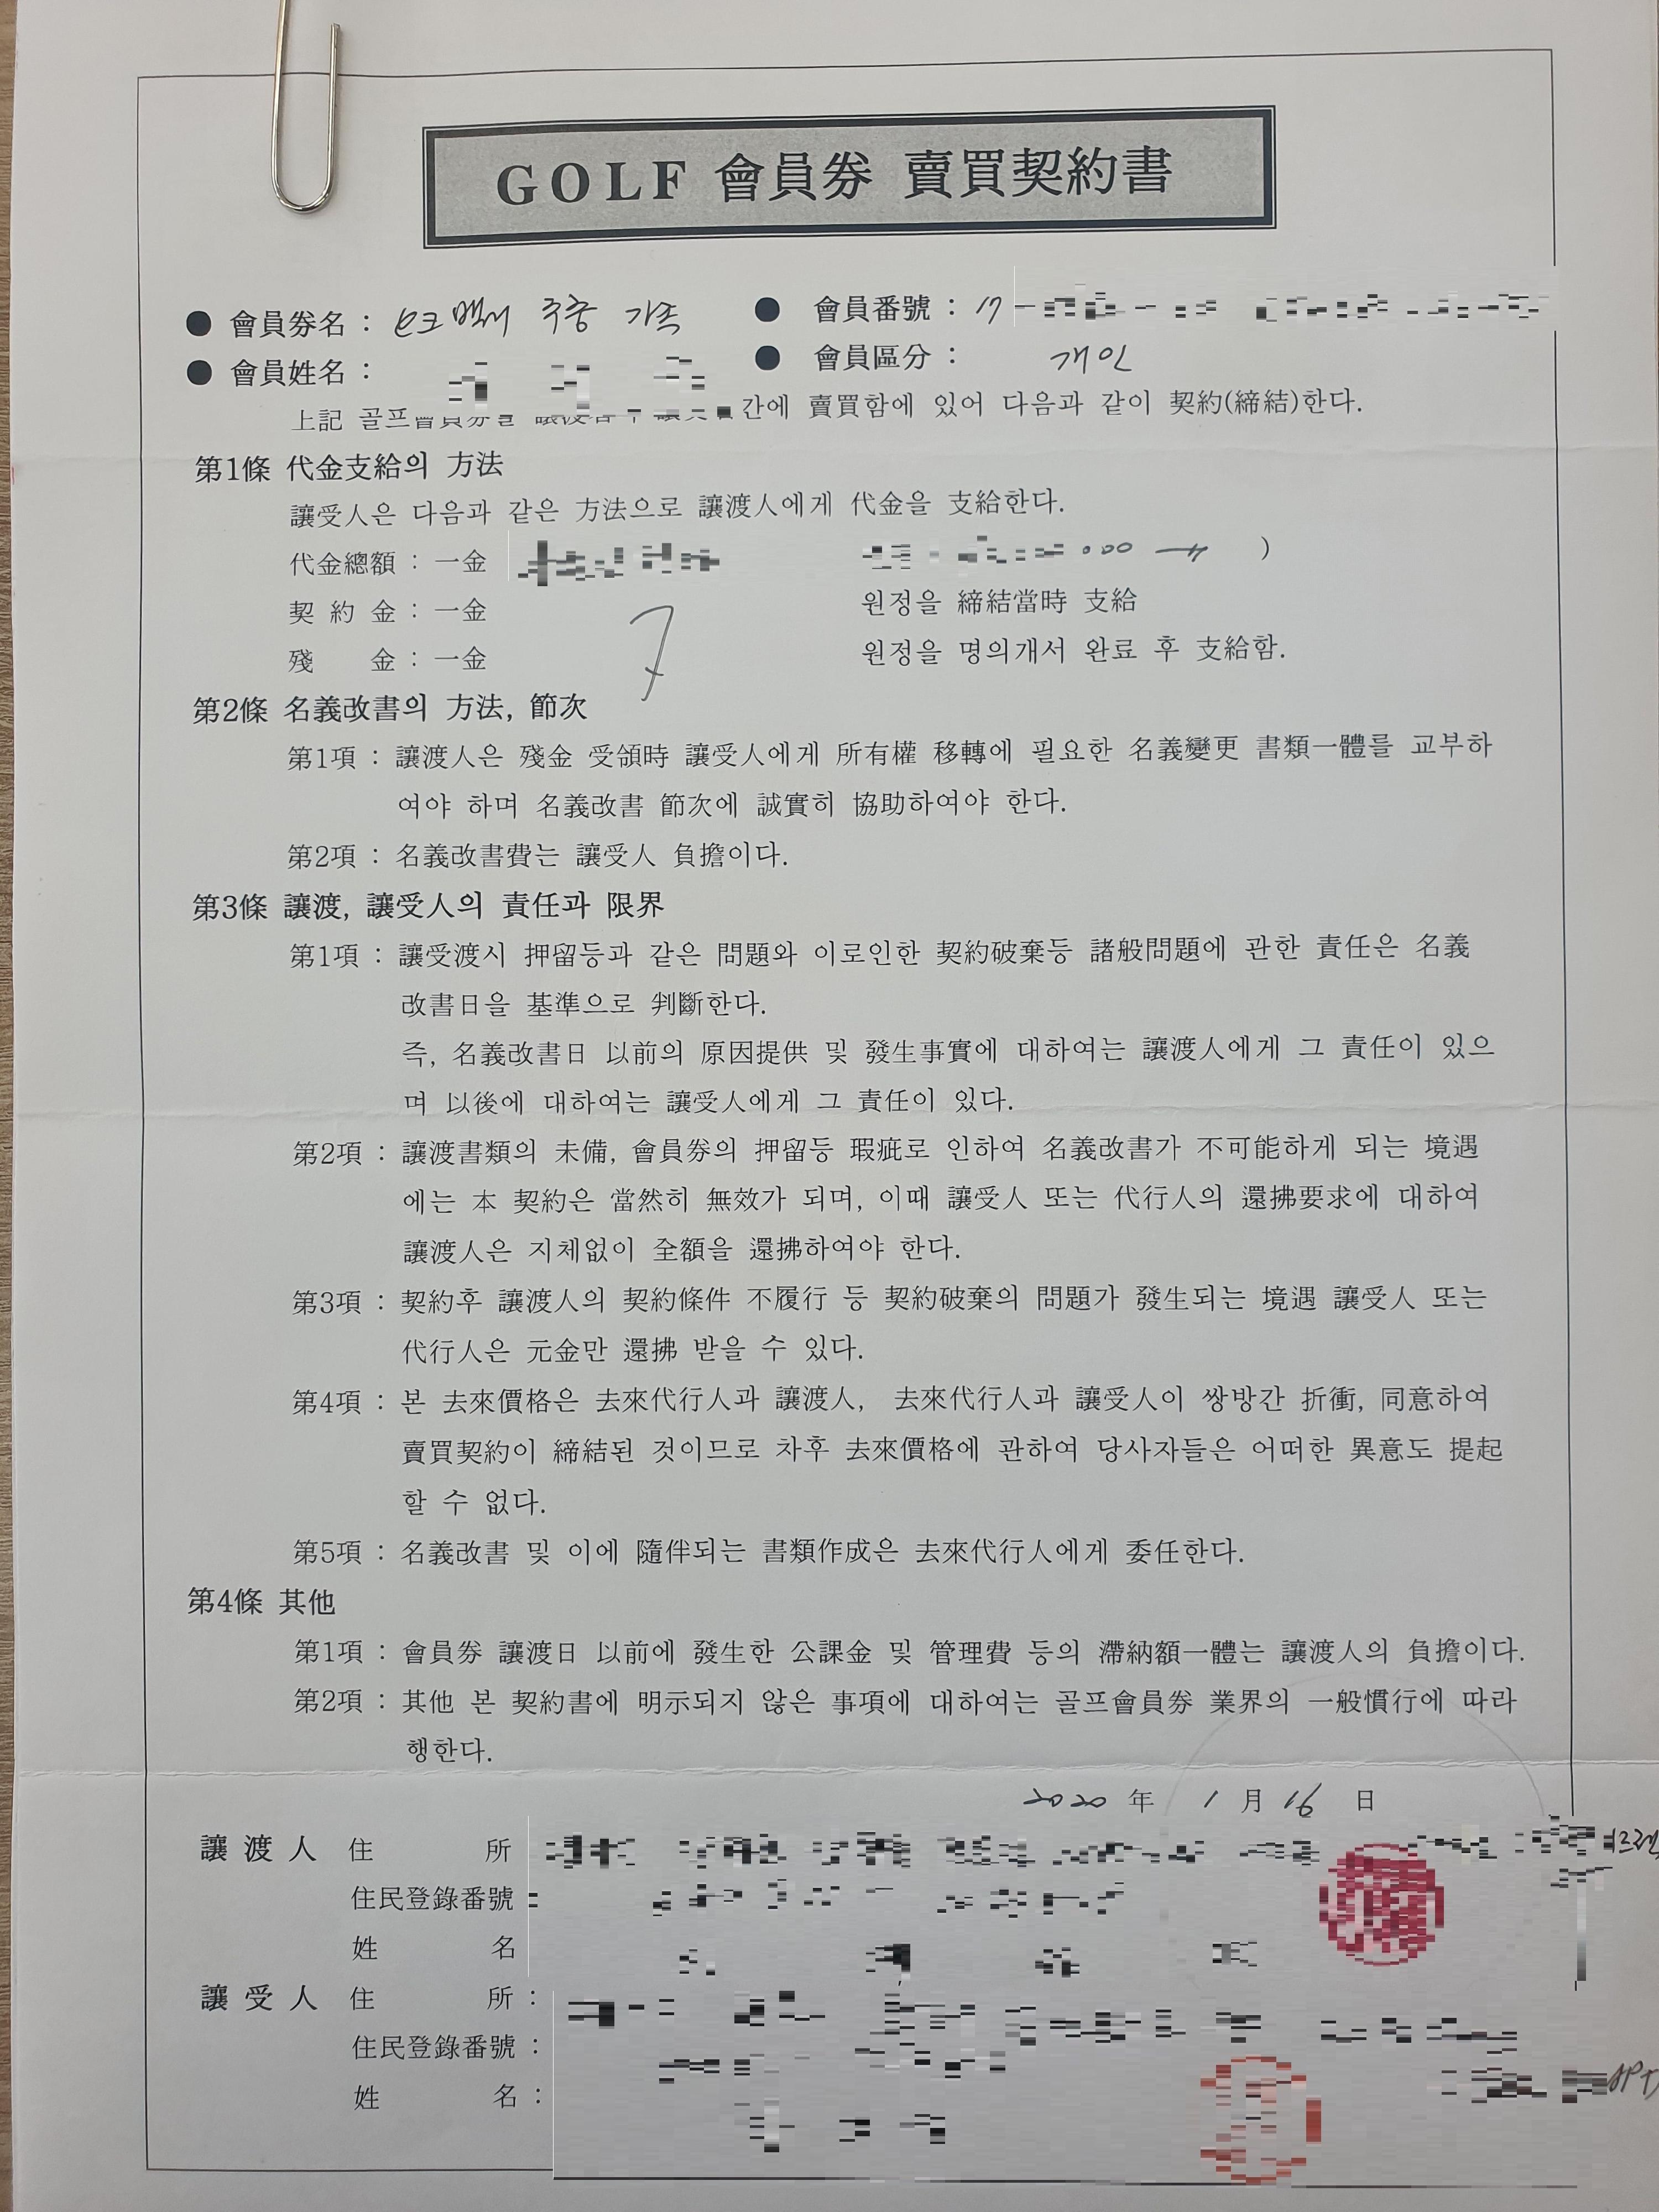 GOLF 會員券 賣買契約書
● 會員券名 : 주중 가족 ● 會員番號 : 17
● 會員姓名 : ● 會員區分 : 개인
上記 골프會員券을 間에 賣買함에 있어 다음과 같이 契約(締結)한다.
第1條 代金支給의 方法
讓受人은 다음과 같은 方法으로 讓渡人에게 代金을 支給한다.
代金總額 : 一金 000 )
契 約 金 : 一金 원정을 締結當時 支給
殘 金 : 一金 원정을 명의개서 완료 후 支給함.
第2條 名義改書의 方法, 節次
第1項 : 讓渡人은 殘金 受領時 讓受人에게 所有權 移轉에 필요한 名義變更 書類一體를 교부하
여야 하며 名義改書 節次에 誠實히 協助하여야 한다.
第2項 : 名義改書費는 讓受人 負擔이다.
第3條 讓渡, 讓受人의 責任과 限界
第1項 : 讓受渡시 押留등과 같은 問題와 이로인한 契約破棄등 諸般問題에 관한 責任은 名義
改書日을 基準으로 判斷한다.
즉, 名義改書日 以前의 原因提供 및 發生事實에 대하여는 讓渡人에게 그 責任이 있으
며 以後에 대하여는 讓受人에게 그 責任이 있다.
第2項 : 讓渡書類의 未備, 會員券의 押留등 瑕疵로 인하여 名義改書가 不可能하게 되는 境遇
에는 本 契約은 當然히 無效가 되며, 이때 讓受人 또는 代行人의 還拂要求에 대하여
讓渡人은 지체없이 全額을 還拂하여야 한다.
第3項 : 契約후 讓渡人의 契約條件 不履行 등 契約破棄의 問題가 發生되는 境遇 讓受人 또는
代行人은 元金만 還拂 받을 수 있다.
第4項 : 본 去來價格은 去來代行人과 讓渡人, 去來代行人과 讓受人이 쌍방간 折衝, 同意하여
賣買契約이 締結된 것이므로 차후 去來價格에 관하여 당사자들은 어떠한 異意도 提起
할 수 없다.
第5項 : 名義改書 및 이에 隨伴되는 書類作成은 去來代行人에게 委任한다.
第4條 其他
第1項 : 會員券 讓渡日 以前에 發生한 公課金 및 管理費 등의 滯納額一體는 讓渡人의 負擔이다.
第2項 : 其他 본 契約書에 明示되지 않은 事項에 대하여는 골프會員券 業界의 一般慣行에 따라
행한다.
2020 年 1 月 16 日
讓 渡 人 住 所
住民登錄番號
姓 名
讓 受 人 住 所 :
住民登錄番號 :
APT
姓 名 :